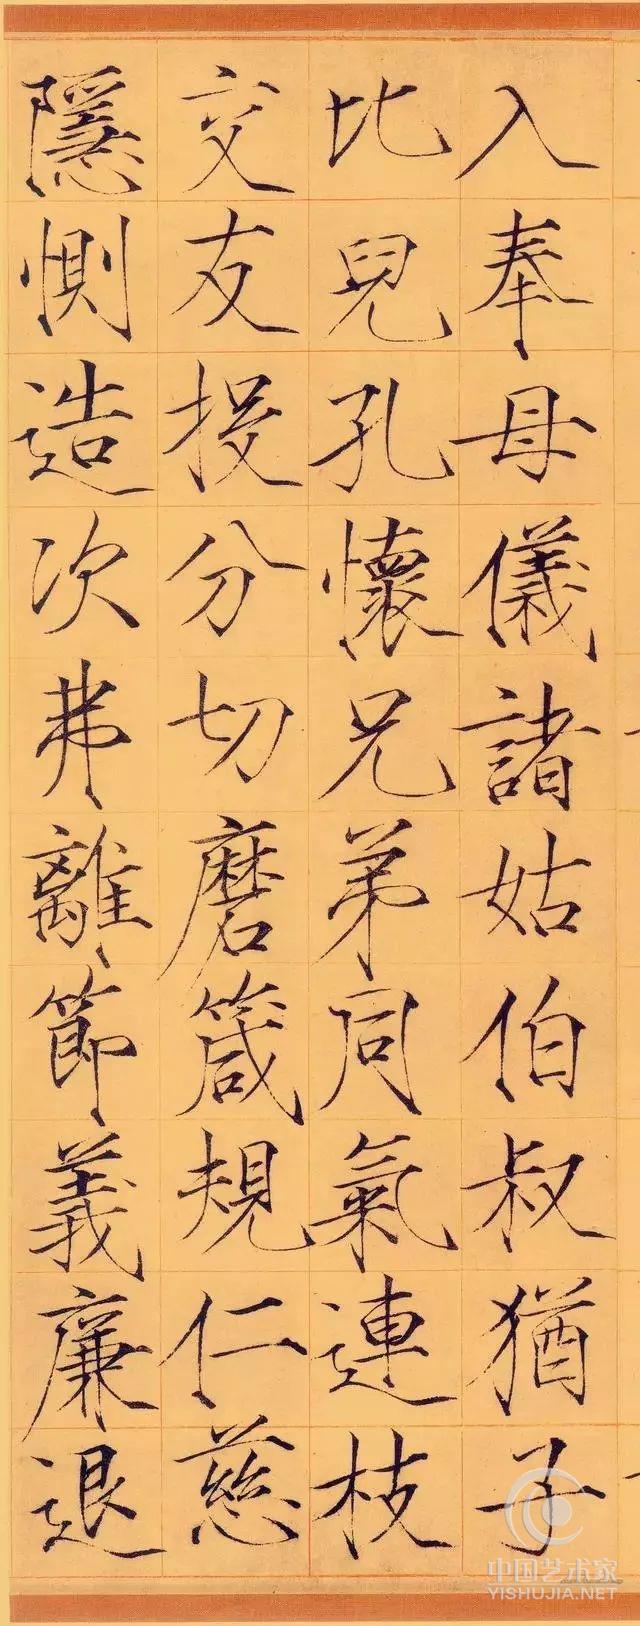 入奉母儀諸姑伯叔猶子
比兒孔懷兄弟同氣連枝
交友投分切磨箴規仁慈
隱惻造次弗離節義廉退
中国艺术家
YISHUJIA.NET